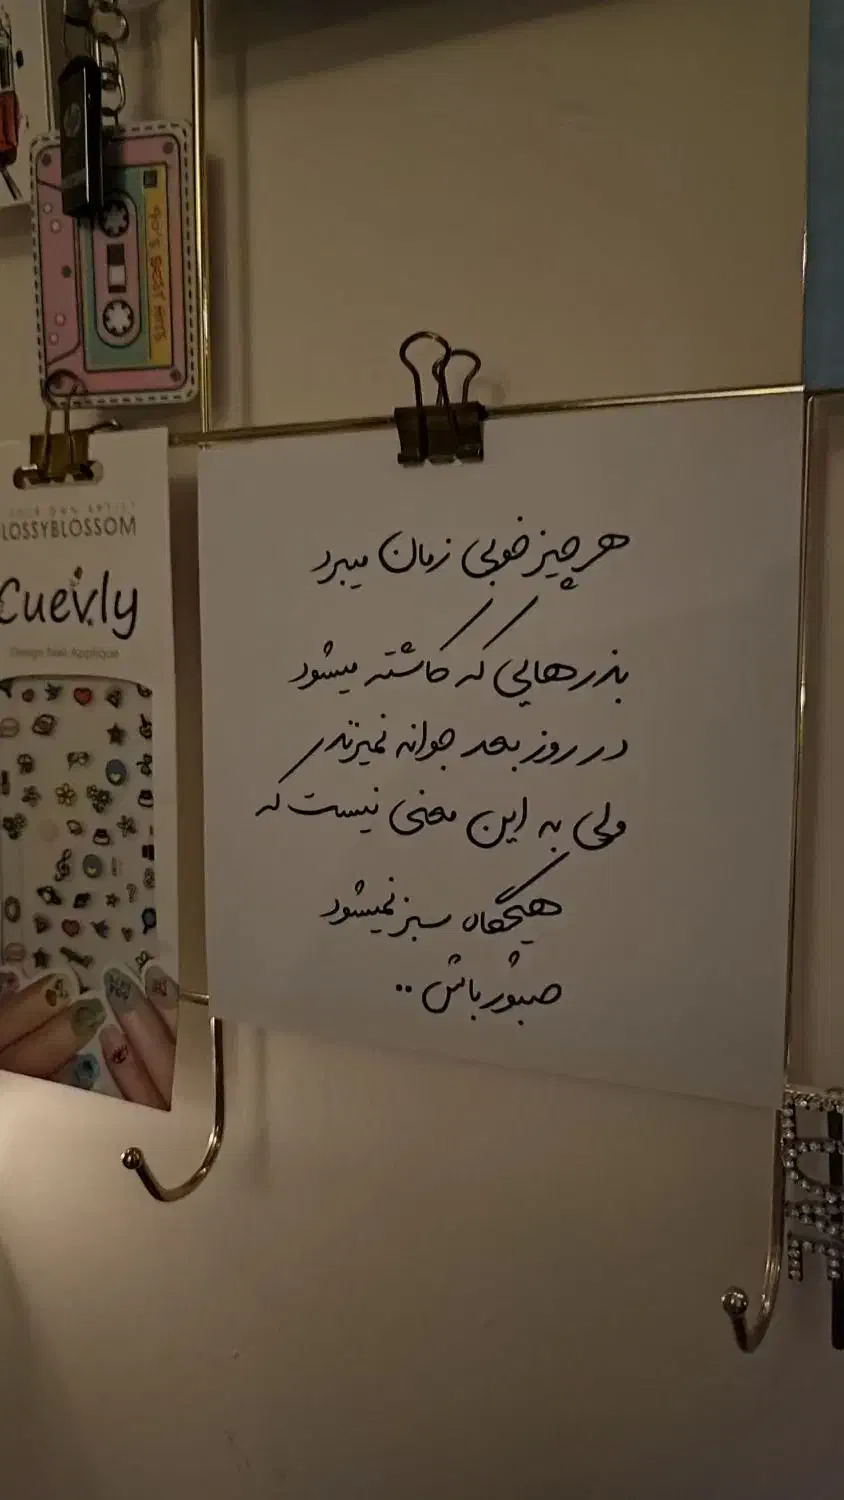 90's BEST HITS
hp
YOUR OWN ARTIST
LOSSYBLOSSOM
Cuevly
Design Nail Applique
هر چیز خوبی زمان میبرد
بذرهایی که کاشته میشود
در روز بعد جوانه نمیزند
ولی به این معنی نیست که
هیچگاه سبز نمیشود
صبور باش ..